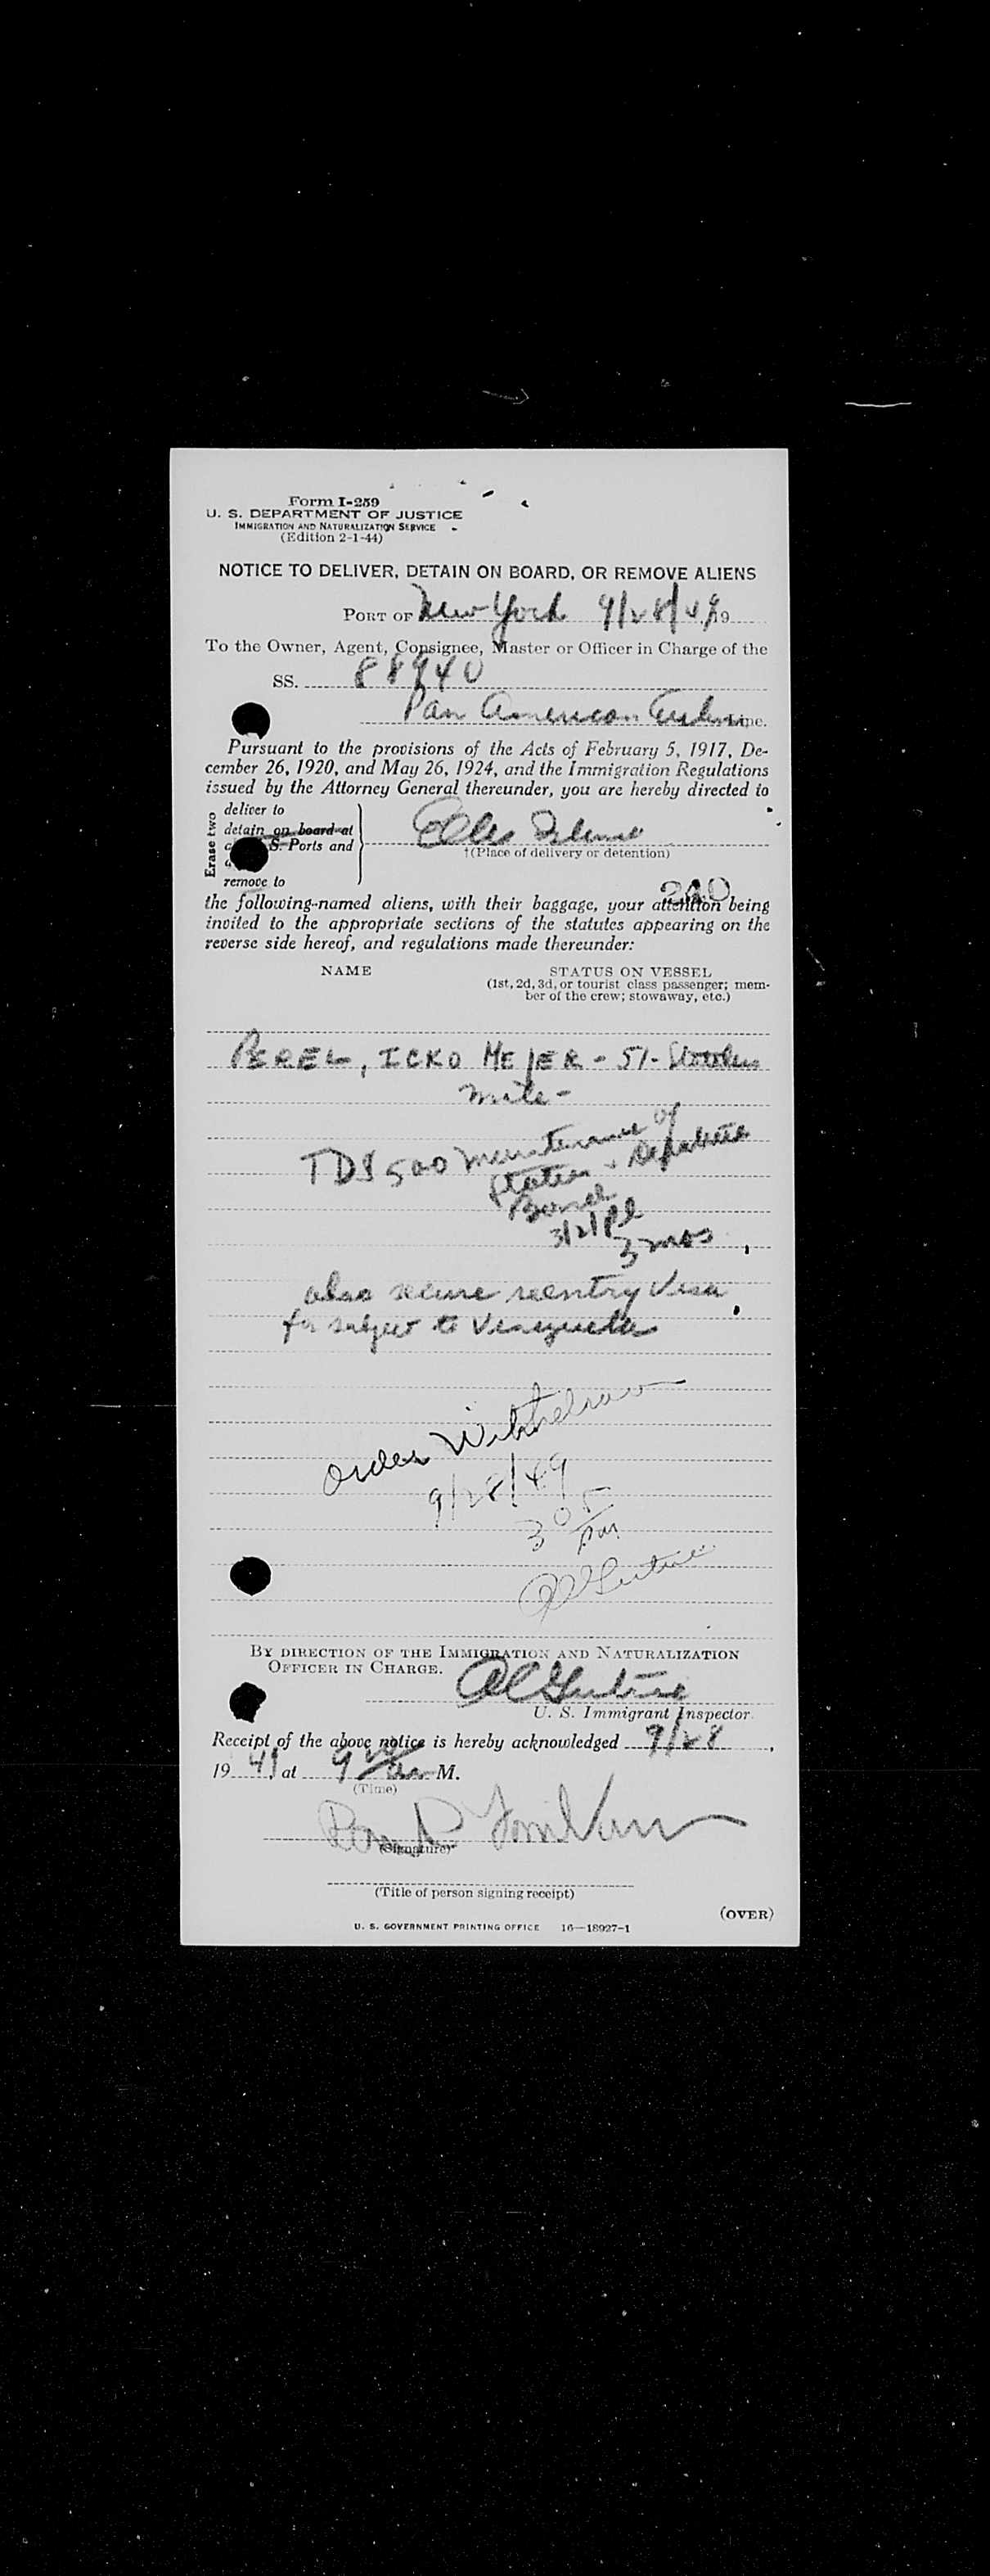 Form I-259
U. S. DEPARTMENT OF JUSTICE
IMMIGRATION AND NATURALIZATION SERVICE
(Edition 2-1-44)
NOTICE TO DELIVER, DETAIN ON BOARD, OR REMOVE ALIENS
PORT OF New York 9/28/49 19
To the Owner, Agent, Consignee, Master or Officer in Charge of the
SS.
Pan American Line.
Pursuant to the provisions of the Acts of February 5, 1917, De-
cember 26, 1920, and May 26, 1924, and the Immigration Regulations
issued by the Attorney General thereunder, you are hereby directed to
Erase two
deliver to
detain on board at
S. Ports and
remove to
Ellis Island
†(Place of delivery or detention)
240
the following-named aliens, with their baggage, your attention being
invited to the appropriate sections of the statutes appearing on the
reverse side hereof, and regulations made thereunder:
NAME
STATUS ON VESSEL
(1st, 2d, 3d, or tourist class passenger; mem-
ber of the crew; stowaway, etc.)
PEREL, ICKO MEJER - 51 - Stateless
TD $500 maintenance of
status + departure
Bond
3 mos
also secure reentry Visa
for subject to Venezuela
Order Withdrawn
9/28/49
3 05 PM
BY DIRECTION OF THE IMMIGRATION AND NATURALIZATION
OFFICER IN CHARGE.
U. S. Immigrant Inspector.
Receipt of the above notice is hereby acknowledged 9/28,
19 49, at 9 M.
(Time)
(Signature)
(Title of person signing receipt)
(OVER)
U. S. GOVERNMENT PRINTING OFFICE 16—18927-1